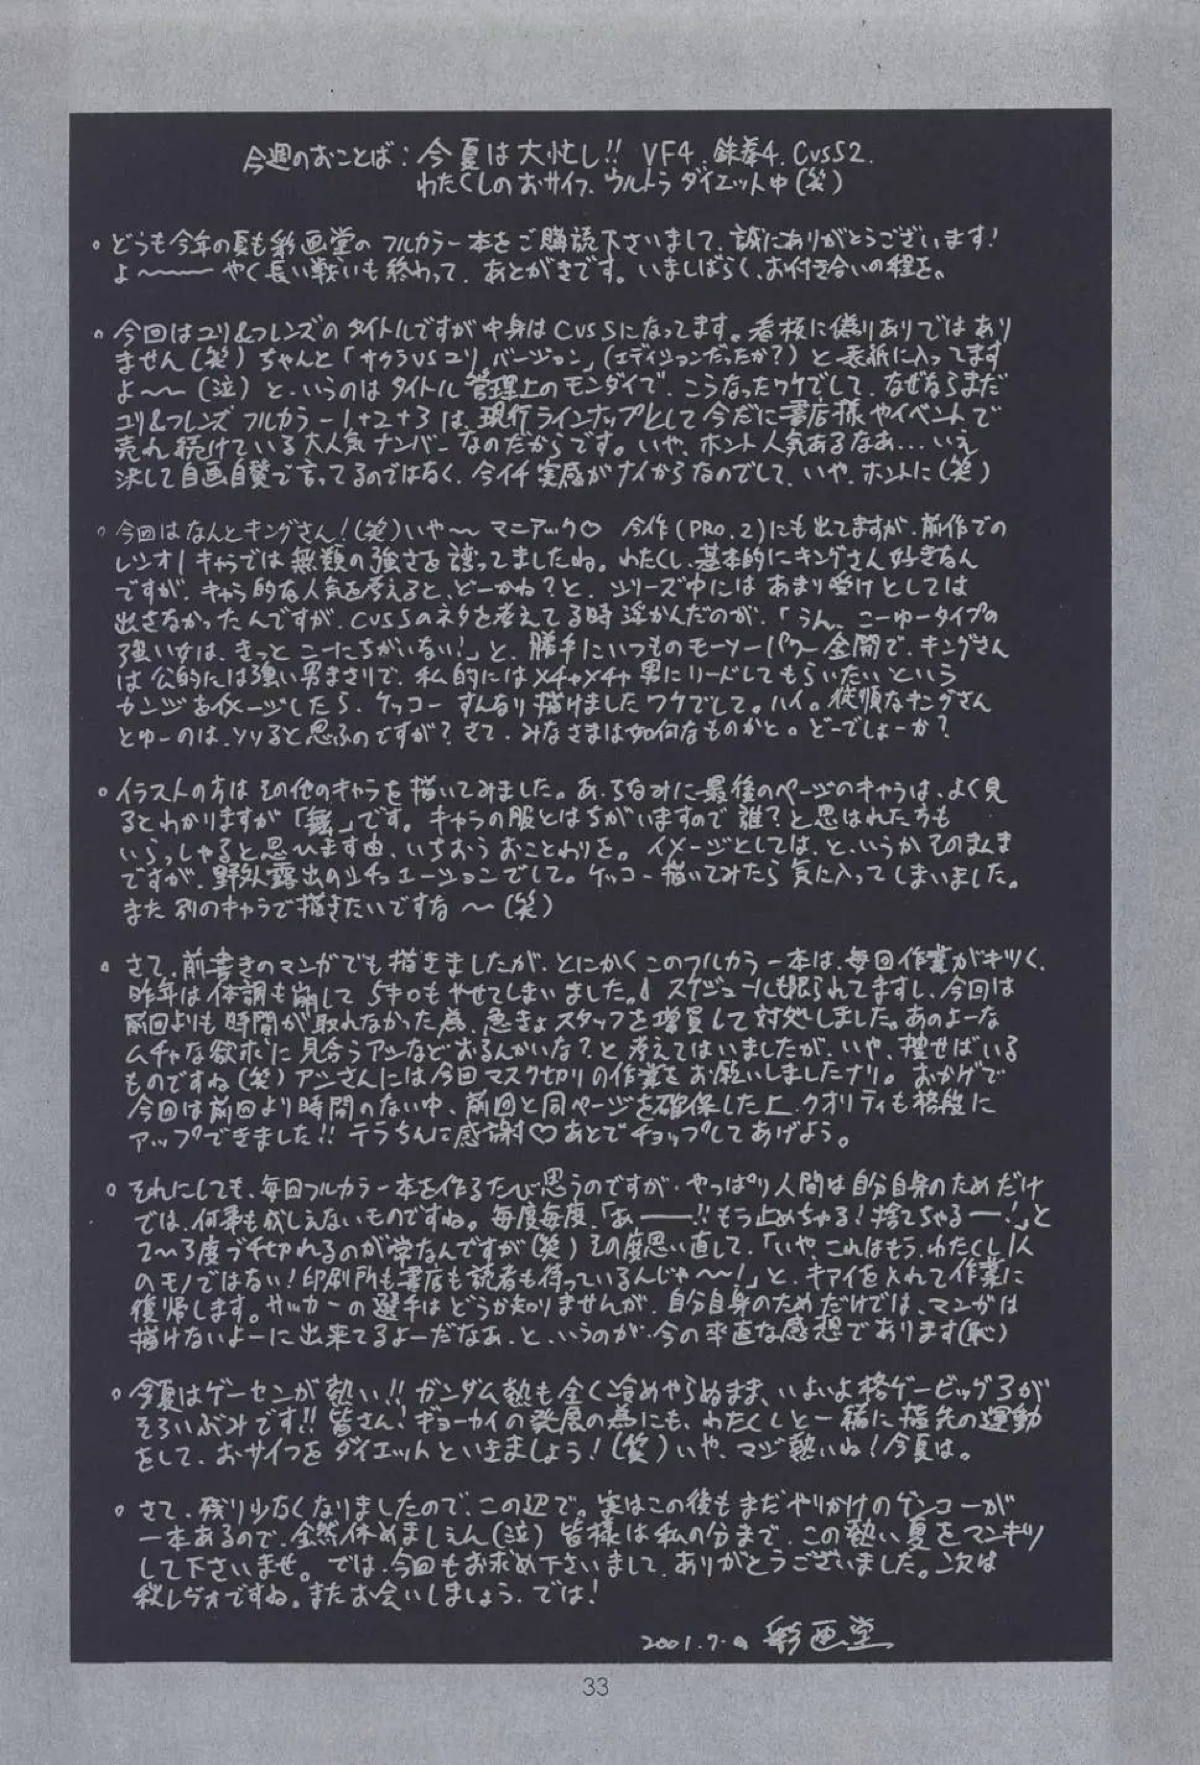 今週のおことば：今夏は大忙し!! VF4．鉄拳4．CvsS2．
わたくしのおサイフ、ウルトラダイエット中(笑)
○どうも今年の夏も彩画堂のフルカラー本をご購読下さいまして、誠にありがとうございます!
よ〜〜〜やく長い戦いも終わって、あとがきです。いましばらく、お付き合いの程を。
○今回はユリ&フレンズのタイトルですが中身はCvsSになってます。看板に偽りありではあり
ません(笑)ちゃんと「サクラvsユリ バージョン」(エディションだったか?)と表紙に入ってます
よ〜〜(泣)と、いうのはタイトル管理上のモンダイで、こうなったワケでして、なぜならまだ
ユリ&フレンズフルカラー1+2+3は、現行ラインナップとして今だに書店様やイベントで
売れ続けている大人気ナンバーなのだからです。いや、ホント人気あるなあ…いえ
決して自画自賛で言ってるのではなく、今イチ実感がナイからなのでして、いや、ホントに(笑)
○今回はなんとキングさん!(笑)いや〜マニアック♡ 今作(PRO.2)にも出てますが、前作での
レシオ1キャラでは無類の強さを誇ってましたね。わたくし、基本的にキングさん好きなん
ですが、キャラ的な人気を考えると、どーかね?と、シリーズ中にはあまり受けとしては
出さなかったんですが、CvsSのネタを考えてる時浮かんだのが、「うん、こーゆータイプの
強い女は、きっとこーにちがいない!」と、勝手にいつものモーソーパワー全開で、キングさん
は公的には強い男まさりで、私的にはメチャメチャ男にリードしてもらいたいという
カンジをイメージしたら、ケッコーすんなり描けましたワケでして。ハイ。従順なキングさん
とゆーのは、ソソると思ふのですが?さて、みなさまは如何なものかと。どーでしょーか?
○イラストの方はその他のキャラを描いてみました。あ、ちなみに最後のページのキャラは、よく見
るとわかりますが「舞」です。キャラの服とはちがいますので誰?と思はれた方も
いらっしゃると思ひます由、いちおうおことわりを。イメージとしては、と、いうかそのまんま
ですが、野外露出のシチュエーションでして。ケッコー描いてみたら気に入ってしまいました。
また別のキャラで描きたいですな〜(笑)
○さて、前書きのマンガでも描きましたが、とにかくこのフルカラー本は、毎回作業がキツく、
昨年は体調も崩して5キロもやせてしまいました。スケジュールも限られてますし、今回は
前回よりも時間が取れなかった為、急きょスタッフを増員して対処しました。あのよーな
ムチャな欲求に見合うアシなどおるんかいな?と考えてはいましたが、いや、捜せばいる
ものですね(笑)アシさんには今回マスク切りの作業をお願いしましたナリ。おかげで
今回は前回より時間のない中、前回と同ページを確保した上、クオリティも格段に
アップできました!!テラちんに感謝♡あとでチョップしてあげよう。
○それにしても、毎回フルカラー本を作るたび思うのですが、やっぱり人間は自分自身のためだけ
では、何事も成しえないものですね。毎度毎度、「あ——!!もう止めちゃる!捨てちゃる—!」と
2〜3度ブチ切れるのが常なんですが(笑)その度思い直して、「いや、これはもう、わたくし1人
のモノではない!印刷所も書店も読者も待っているんじゃ〜〜!」と、キアイを入れて作業に
復帰します。サッカーの選手はどうか知りませんが、自分自身のためだけでは、マンガは
描けないよーに出来てるよーだなあ、と、いうのが、今の率直な感想であります(恥)
○今夏はゲーセンが熱い!!ガンダム熱も全く冷めやらぬまま、いよいよ格ゲービッグ3が
そろいぶみです!!皆さん、ギョーカイの発展の為にも、わたくしと一緒に指先の運動
をして、おサイフをダイエットといきましょう!(笑)いや、マジ熱いね!今夏は。
○さて、残り少なくなりましたので、この辺で。実はこの後もまだやりかけのゲンコーが
一本あるので、全然休めましぇん(泣)皆様は私の分まで、この熱い夏をマンキツ
して下さいませ。では、今回もお求め下さいまして、ありがとうございました。次は
秋レヴォですね。またお会いしましょう、では!
2001.7. 彩画堂
33